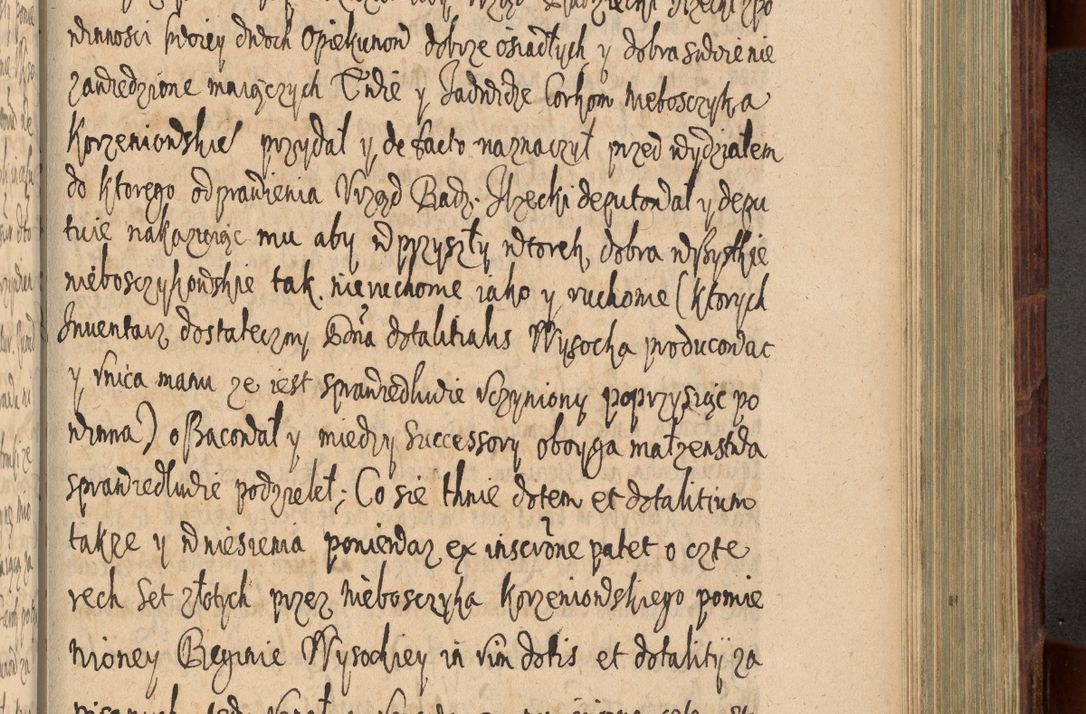 winności swoiey dwóch Opiekunow dobrze ośiadłych y dobra swoie nie
zawiedzione maiączych Ewie y Jadwidze Corkom nieboszczyka
Korzeniowskie przydał y de facto naznaczył przed wydziałem
do ktorego odprawienia Vrząd Radz. Ilzecki deputował y depu
tuie nakazuiąc mu aby w przyszły wtorek dobra wszystkie
nieboszczykowskie tak nieruchome iako y ruchome (ktorych
Inwentarz dostateczny dotalitialis Wysocka producowac
y vnica manu ze iest sprawiedliwie vczyniony poprzysiąc po
winna) oszacował y miedzy Successory oboyga małzenstwa
sprawiedliwie podzielił; Co sie tknie dotem et dotalitium
takze y wniesienia poniewaz ex inscrõne patet o czte
rech set złotych przez nieboszczyka Korzeniowskiego pomie
nioney Reginie Wysockiey in vim dotis et dotalitij za